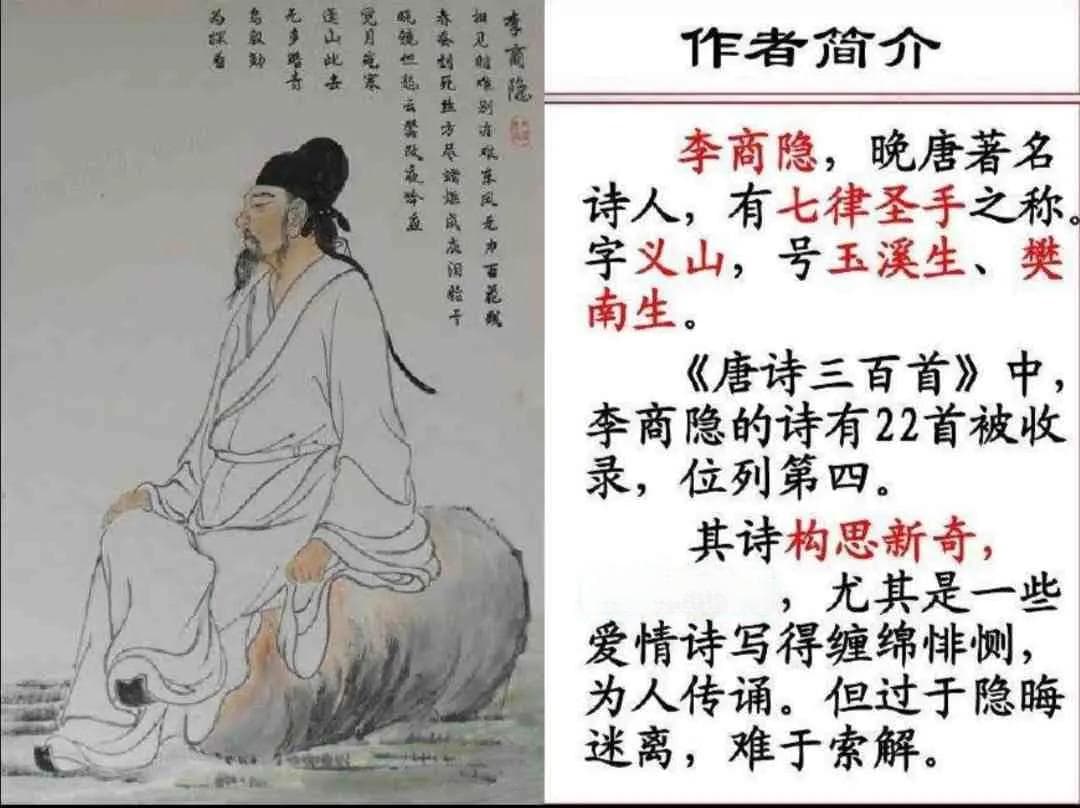 李商隐
相见时难别亦难东风无力百花残
春蚕到死丝方尽蜡炬成灰泪始干
晓镜但愁云鬓改夜吟应
觉月光寒
蓬山此去
无多路青
鸟殷勤
为探看
作者简介
李商隐，晚唐著名
诗人，有七律圣手之称。
字义山，号玉溪生、樊
南生。
《唐诗三百首》中，
李商隐的诗有22首被收
录，位列第四。
其诗构思新奇，
，尤其是一些
爱情诗写得缠绵悱恻，
为人传诵。但过于隐晦
迷离，难于索解。